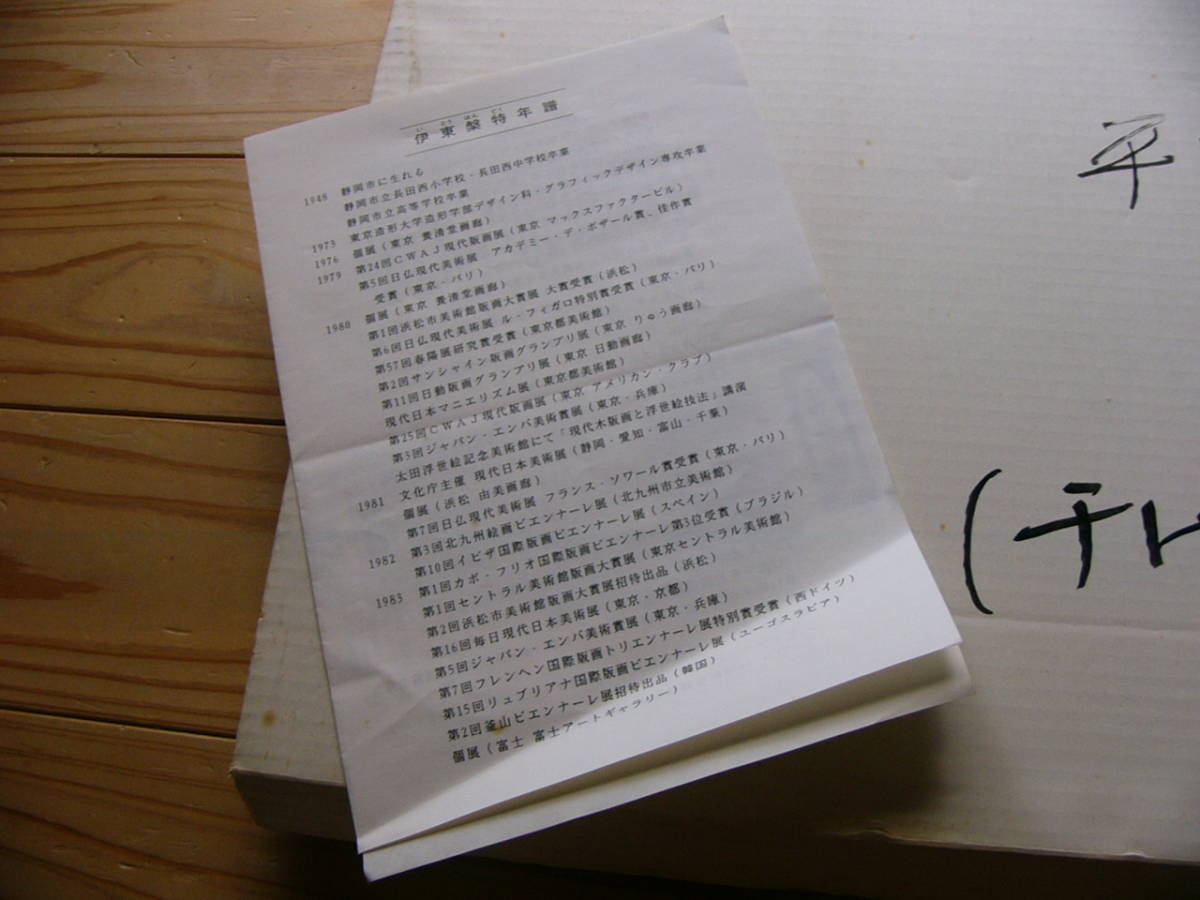 いとうはんどく
伊東槃特年譜
1948 静岡市に生れる
静岡市立長田西小学校・長田西中学校卒業
静岡市立高等学校卒業
1973 東京造形大学造形学部デザイン科・グラフィックデザイン専攻卒業
1976 個展(東京 養清堂画廊)
1979 第24回CWAJ現代版画展(東京 マックスファクタービル)
第5回日仏現代美術展 アカデミー・デ・ボザール賞、佳作賞
受賞(東京・パリ)
個展(東京 養清堂画廊)
1980 第1回浜松市美術館版画大賞展 大賞受賞(浜松)
第6回日仏現代美術展 ル・フィガロ特別賞受賞(東京・パリ)
第57回春陽展研究賞受賞(東京都美術館)
第2回サンシャイン版画グランプリ展(東京 りゅう画廊)
第11回日動版画グランプリ展(東京 日動画廊)
現代日本マニエリズム展(東京都美術館)
第25回CWAJ現代版画展(東京 アメリカン・クラブ)
第3回ジャパン・エンバ美術賞展(東京・兵庫)
太田浮世絵記念美術館にて「現代木版画と浮世絵技法」講演
文化庁主催 現代日本美術展(静岡・愛知・富山・千葉)
1981 個展(浜松 由美画廊)
第7回日仏現代美術展 フランス・ソワール賞受賞(東京・パリ)
1982 第3回北九州絵画ビエンナーレ展(北九州市立美術館)
第10回イビザ国際版画ビエンナーレ展(スペイン)
1983 第1回カボ・フリオ国際版画ビエンナーレ第3位受賞(ブラジル)
第1回セントラル美術館版画大賞展(東京セントラル美術館)
第2回浜松市美術館版画大賞展招待出品(浜松)
第16回毎日現代日本美術展(東京・京都)
第5回ジャパン・エンバ美術賞展(東京・兵庫)
第7回フレンヘン国際版画トリエンナーレ展特別賞受賞(西ドイツ)
第15回リュブリアナ国際版画ビエンナーレ展(ユーゴスラビア)
第2回釜山ビエンナーレ展招待出品(韓国)
個展(富士 富士アートギャラリー)
平
(テレ